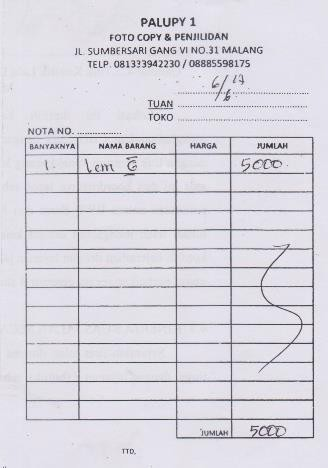 PALUPY 1
FOTO COPY & PENJILIDAN
JL. SUMBERSARI GANG VI NO.31 MALANG
TELP. 081333942230 / 08885598175
6/6 17
TUAN
TOKO
NOTA NO. ..................
BANYAKNYA NAMA BARANG HARGA JUMLAH
1. lem G 5000
JUMLAH 5000
TTD,